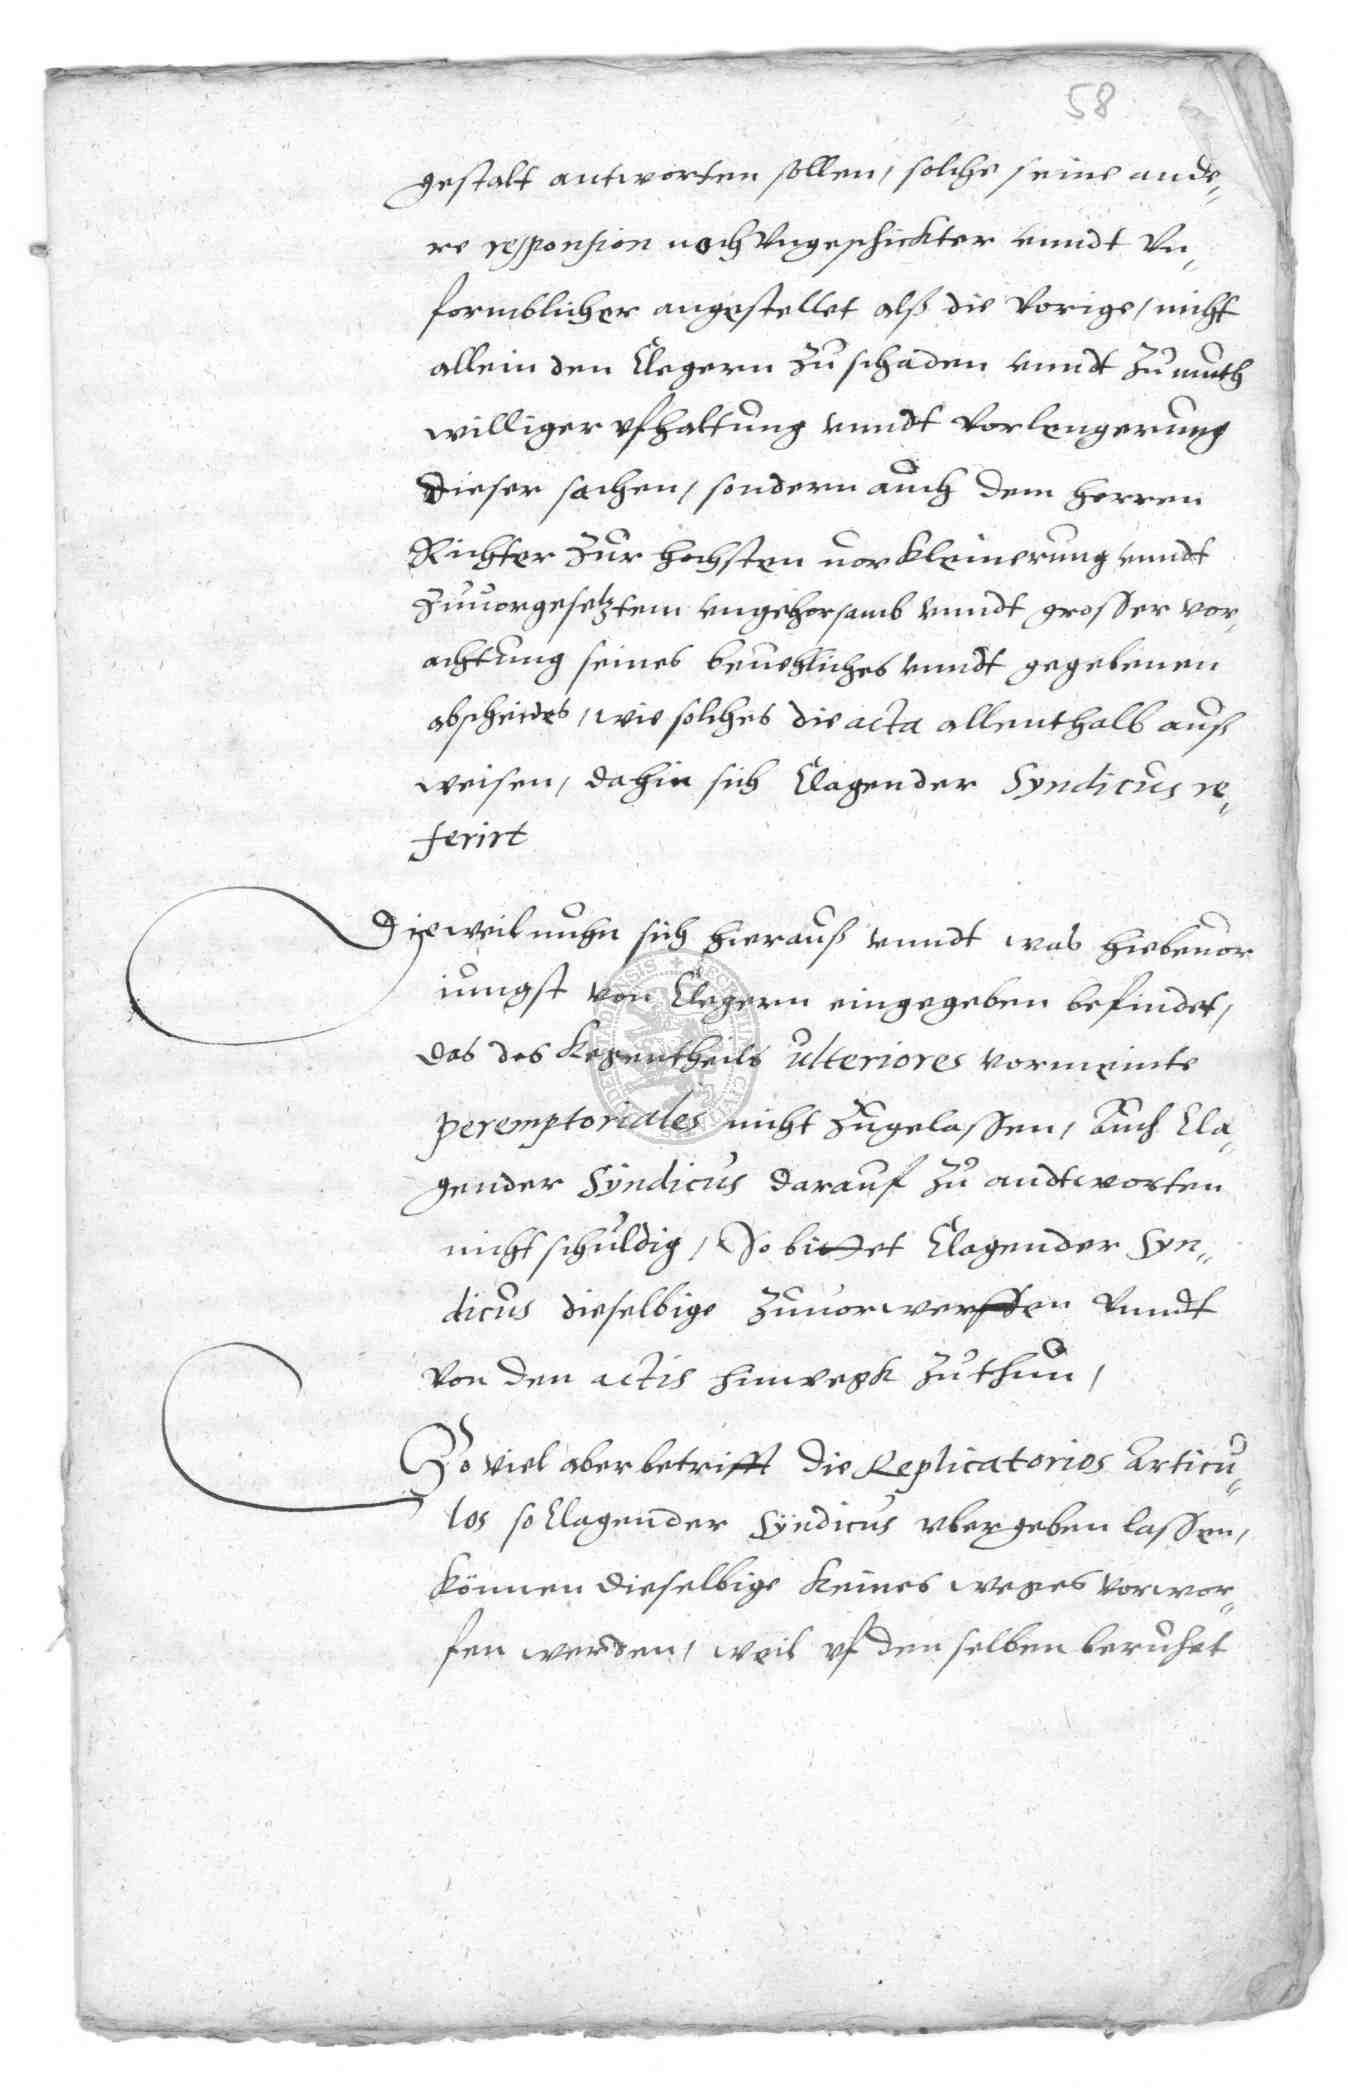 58
gestalt antworten sollen, solche seine ande„
re responsion noch Vngeschickter vnndt Vn„
formblicher angestellet alß die Vorige, nicht
allein den Clegern Zu schaden vnndt Zu muth
williger vfhaltung vnndt Vorlengerung
dieser sachen, sondern auch dem herren
Richter Zur hochsten vorkleinerung vnndt
Zuuorgesetztem vngehorsamb vnndt grosser vor„
achtung seines beuehliches vnndt gegebenen
abscheides, wie solches die acta allenthalb auß
weisen, dahin sich Clagender Syndicus re„
ferirt
Dieweil nuhn sich hierauß vnndt was hiebeuor
iungst von Clegern eingegeben befindet,
das des kegentheils ulteriores vormeinte
peremptoriales nicht Zugelassen, Auch Cla„
gender Syndicus darauf Zu andtworten
nicht schuldig, So bittet Clagender Syn„
dicus dieselbige Zuuorwerffen Vnndt
von den actis hinwegk Zuthun,
So viel aber betrifft die Replicatorios Articu„
los so Clagender Syndicus vbergeben lassen,
können dieselbige keines weges vorwor„
fen werden, weil vf denselben beruhet